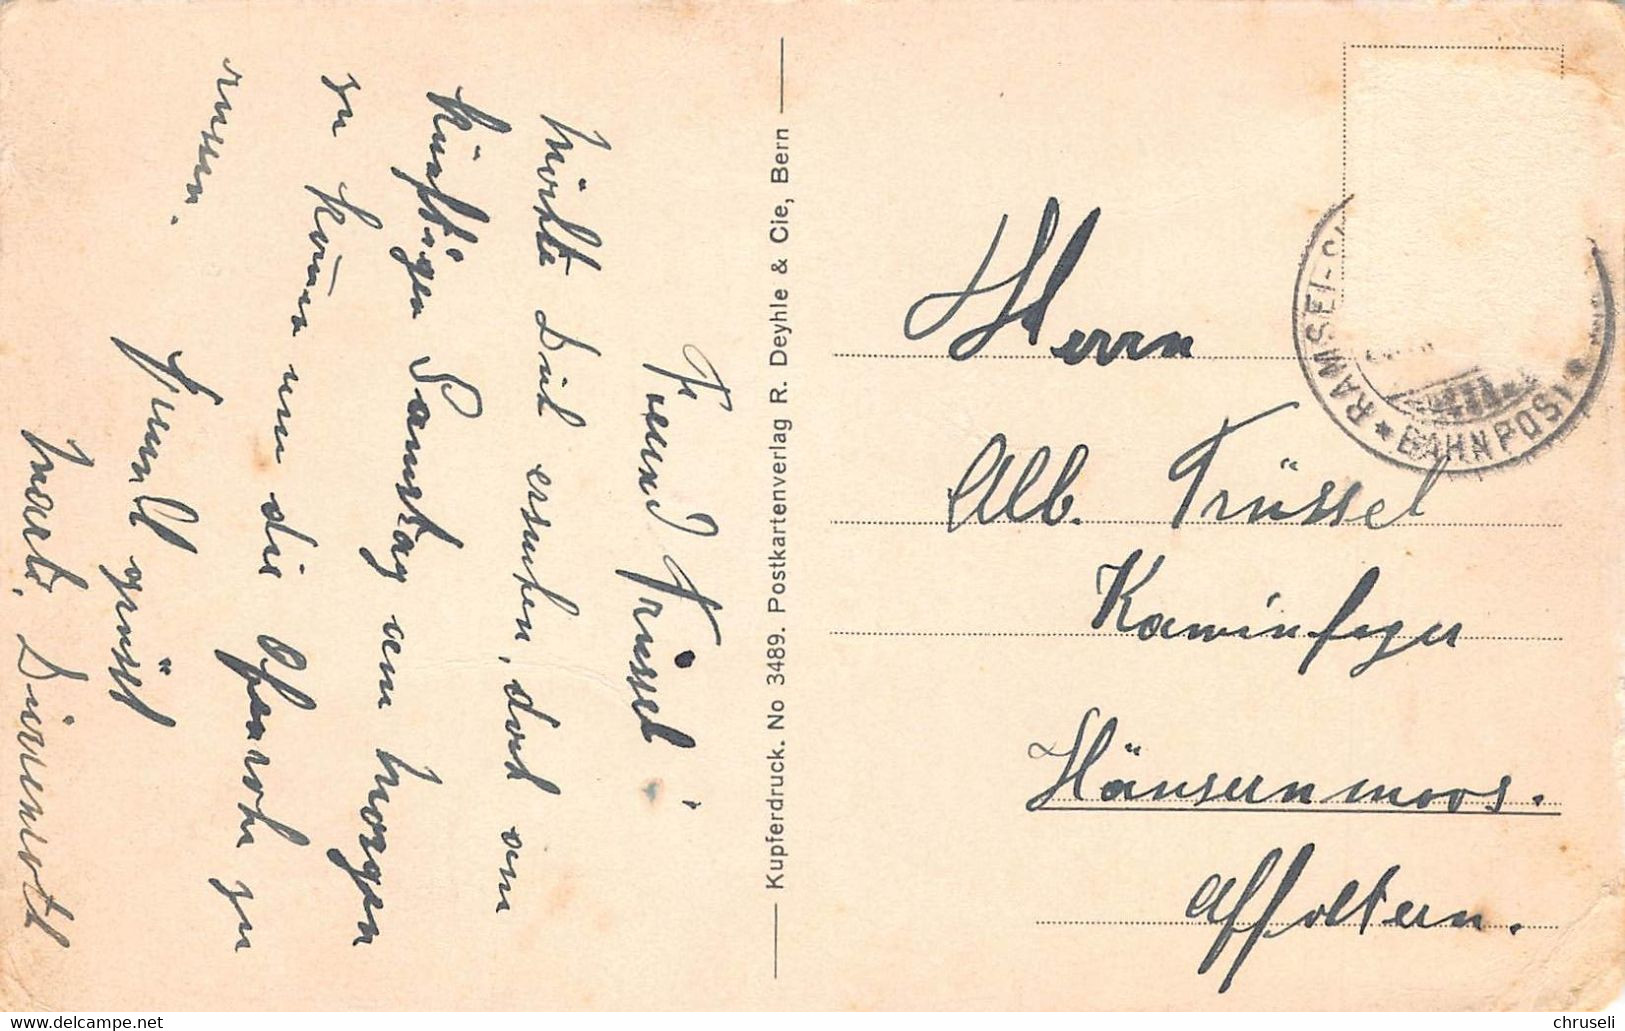 Freund Trüssel!
Möchte Dich ersuchen, dort am
künftigen Samstag am Morgen
zu komen um die Ofenrohr zu
russen.
Freundl grüsst
Dürrenroth
Kupferdruck. No 3489. Postkartenverlag R. Deyhle & Cie, Bern
RAMSEI-
BAHNPOST
Herrn
Alb. Trüssel
Kaminfeger
Häusernmoos.
Affoltern.
chruseli